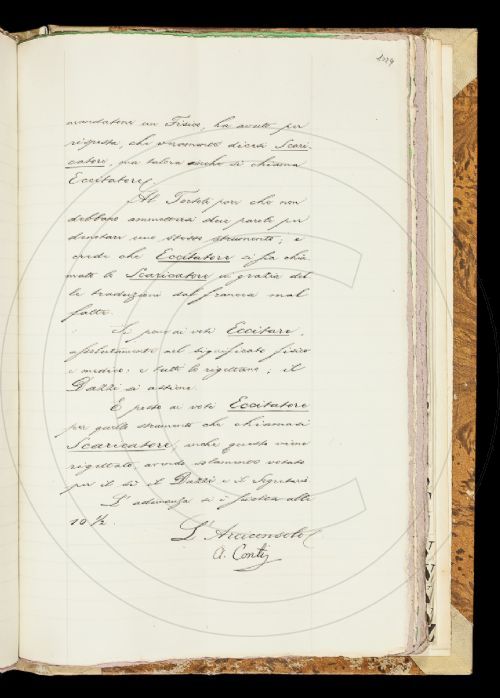 mandatone un Fisico, ha avuto per
risposta, che veramente dicesi Scari-
catore, ma talora anche si chiama
Eccitatore.
Al Tortoli pare che non
debbano ammettersi due parole per
denotare uno stesso strumento; e
crede che Eccitatore si sia chia
mato lo Scaricatore in grazia del
le traduzioni dal francese mal
fatte.
Si pone ai voti Eccitare,
assolutamente nel significato fisico
e medico: e tutti lo rigettano; il
Dazzi si astiene.
E posto ai voti Eccitatore
per quello strumento che chiamasi
Scaricatore, anche questo viene
rigettato, avendo solamente votato
per il sì il Dazzi e il Segretario
L'adunanza si è sciolta alle
10 ½.
L'Arciconsolo
A. Conti